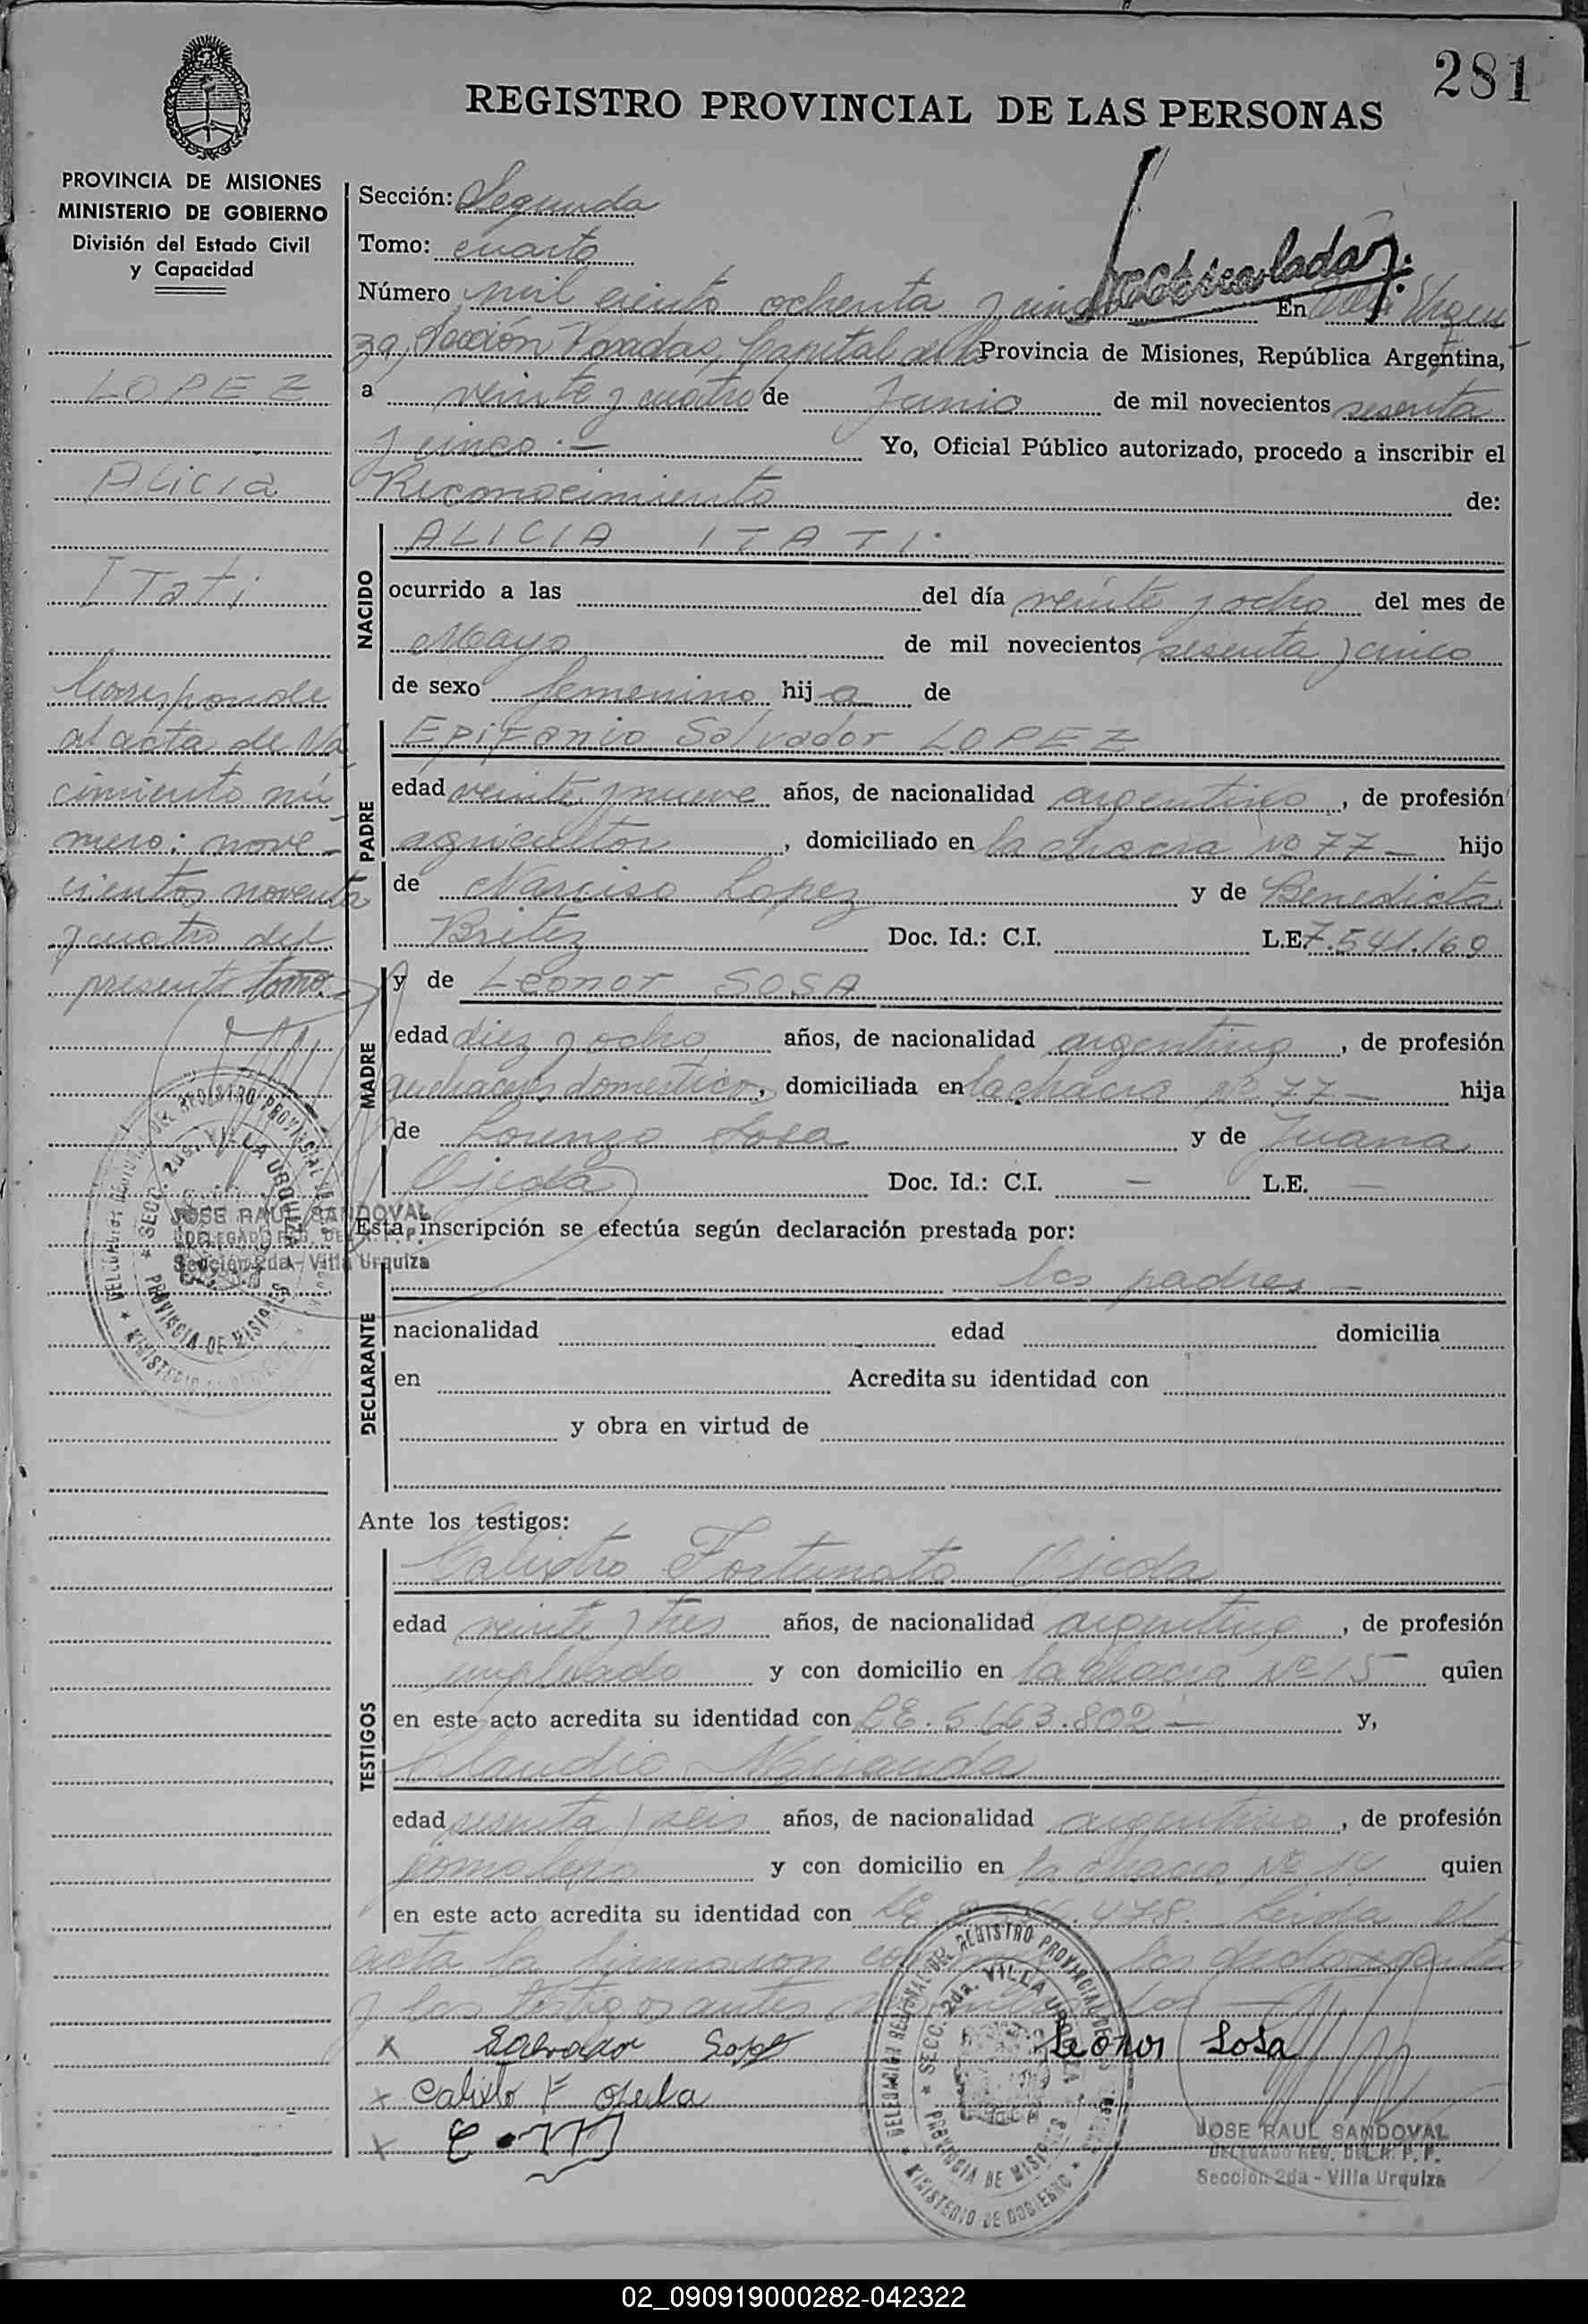 281
REGISTRO PROVINCIAL DE LAS PERSONAS
PROVINCIA DE MISIONES
MINISTERIO DE GOBIERNO
División del Estado Civil
y Capacidad
LOPEZ
Alicia
ITati
Corresponde
al acta de Na
cimiento nú
mero: nove-
cientos noventa
y cuatro del
presente tomo.
Sección: Segunda
Tomo: cuarto
Número mil ciento ochenta y cinco En Villa Urqui
za, Sección Posadas, Capital de la Provincia de Misiones, República Argentina,
a veinte y cuatro de Junio de mil novecientos sesenta
y cinco.- Yo, Oficial Público autorizado, procedo a inscribir el
Reconocimiento de:
NACIDO
ALICIA ITATI.
ocurrido a las del día veinte y ocho del mes de
Mayo de mil novecientos sesenta y cinco
de sexo femenino hija de
PADRE
Epifanio Salvador LOPEZ
edad veinte y nueve años, de nacionalidad argentino, de profesión
agricultor, domiciliado en la chacra Nº 77- hijo
de Narciso Lopez y de Benedicta
Britez Doc. Id.: C.I. L.E 7.541.169
MADRE
y de Leonor SOSA
edad diez y ocho años, de nacionalidad argentina, de profesión
quehaceres domesticos, domiciliada en la chacra Nº 77- hija
de Lorenzo Sosa y de Juana
Ojeda Doc. Id.: C.I. - L.E. -
Esta inscripción se efectúa según declaración prestada por:
DECLARANTE
los padres-
nacionalidad edad domicilia
en Acredita su identidad con
y obra en virtud de
Ante los testigos:
TESTIGOS
Calixtro Fortunato Ojeda
edad veinte y tres años, de nacionalidad argentino, de profesión
empleado y con domicilio en la chacra Nº 15 quien
en este acto acredita su identidad con LE. 5663.802- y,
Claudio Miranda
edad sesenta y seis años, de nacionalidad argentino, de profesión
jornalero y con domicilio en la chacra Nº 14 quien
en este acto acredita su identidad con LE 478. Leida el
acta la firmaron los declarantes
y los testigos antes
x Salvador Lopez Leonor Sosa
x Calixto F Ojeda
x C. M
DELEGACION REGIONAL DEL REGISTRO PROVINCIAL DE LAS PERSONAS
SECC. 2da. VILLA URQUIZA
PROVINCIA DE MISIONES
MINISTERIO DE GOBIERNO
JOSE RAUL SANDOVAL
DELEGADO REG. DEL R. P. P.
Sección 2da - Villa Urquiza
DELEGACION REGIONAL DEL REGISTRO PROVINCIAL DE LAS PERSONAS
SECC. 2da. VILLA URQUIZA
PROVINCIA DE MISIONES
MINISTERIO DE GOBIERNO
JOSE RAUL SANDOVAL
DELEGADO REG. DEL R. P. P.
Sección 2da - Villa Urquiza
02_090919000282-042322